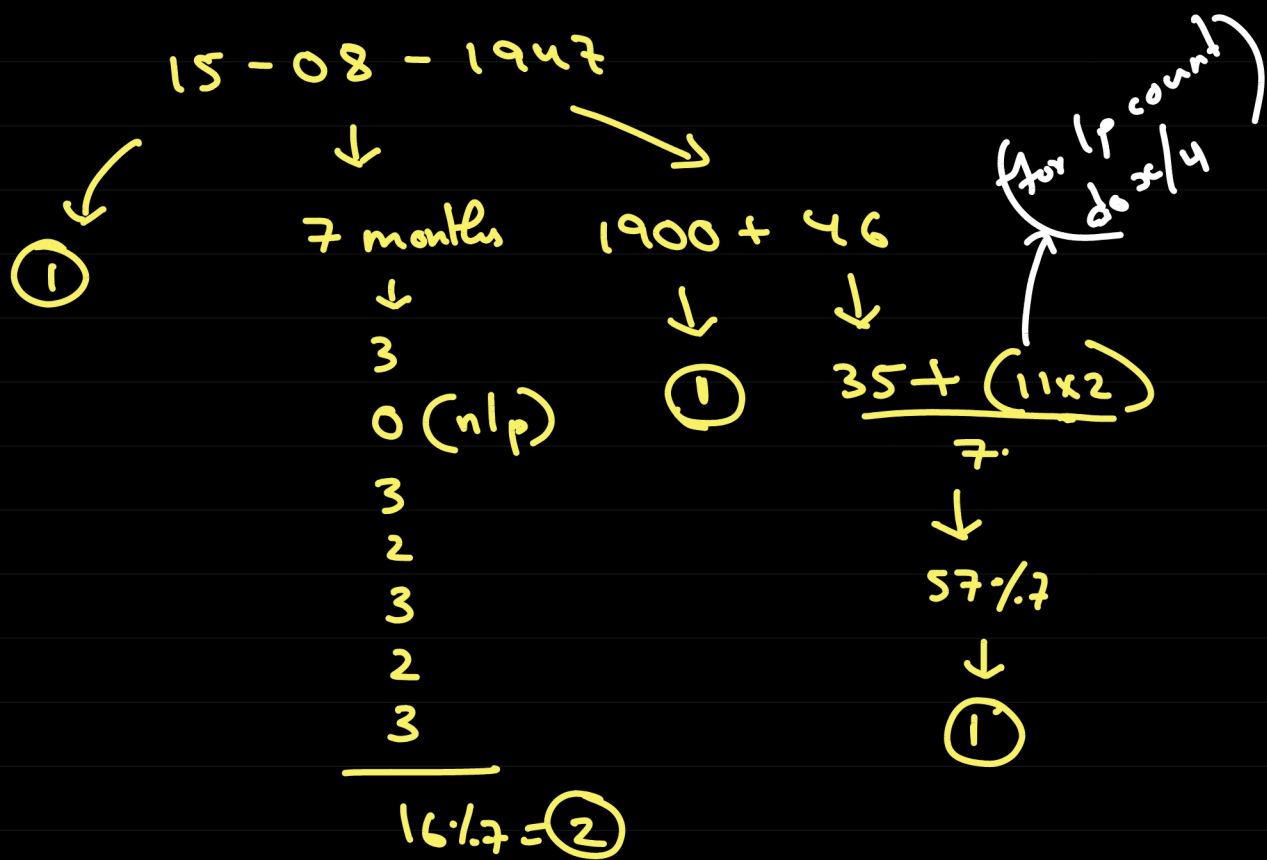 15-08-1947
(for lp count)
do x/4
1
7 months
1900 + 46
3
0 (nlp)
3
2
3
2
3
16%7=2
1
35+(11x2)
7
57%7
1